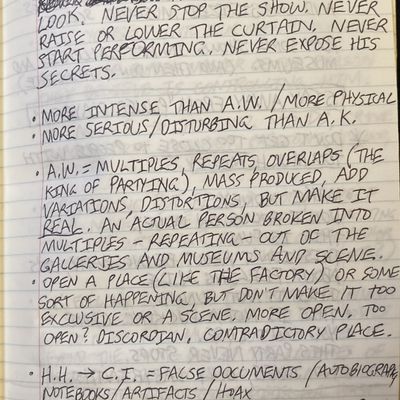 LOOK. NEVER STOP THE SHOW. NEVER
RAISE OR LOWER THE CURTAIN. NEVER
START PERFORMING. NEVER EXPOSE HIS
SECRETS.
• MORE INTENSE THAN A.W. / MORE PHYSICAL
• MORE SERIOUS/DISTURBING THAN A.K.
• A.W. = MULTIPLES, REPEATS, OVERLAPS (THE
KING OF PARTYING), MASS PRODUCED, ADD
VARIATIONS, DISTORTIONS, BUT MAKE IT
REAL. AN ACTUAL PERSON BROKEN INTO
MULTIPLES - REPEATING - OUT OF THE
GALLERIES AND MUSEUMS AND SCENE.
• OPEN A PLACE (LIKE THE FACTORY) OR SOME
SORT OF HAPPENING, BUT DON'T MAKE IT TOO
EXCLUSIVE OR A SCENE. MORE OPEN, TOO
OPEN? DISCORDIAN, CONTRADICTORY PLACE.
• H.H. → C.I. = FALSE DOCUMENTS / AUTOBIOGRAPHY
NOTEBOOKS/ARTIFACTS / HOAX